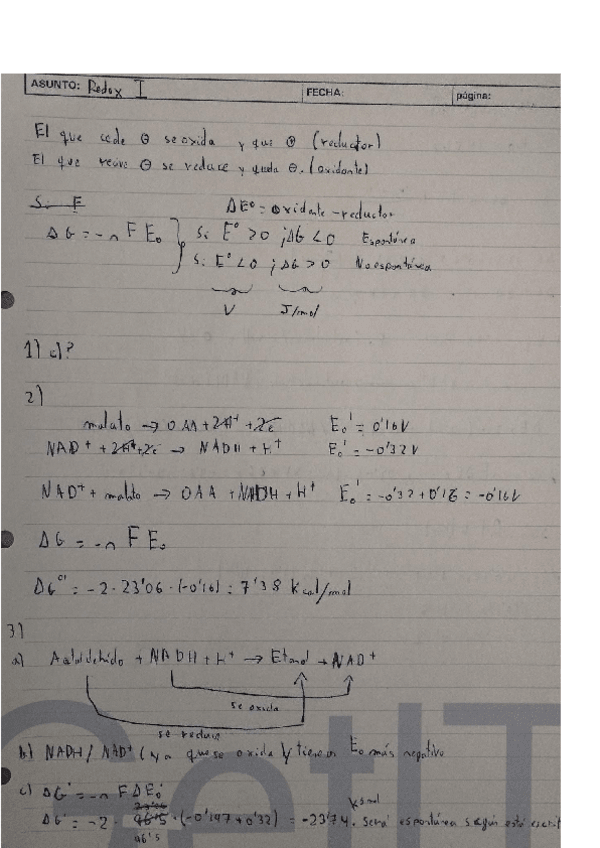 ASUNTO: Redox I FECHA: página:
El que cede ⊖ se oxida y que ⊕ (reductor)
El que recive ⊖ se reduce y queda ⊖. (oxidante)
ΔE° = oxidante - reductor
ΔG = -n F E₀ } Si E° > 0 ; ΔG < 0 Espontánea
Si E° < 0 ; ΔG > 0 No espontánea
V J/mol
1) c)?
2)
malato → OAA + 2H⁺ + 2e E₀' = 0'16V
NAD⁺ + 2H⁺ + 2e → NADH + H⁺ E₀' = -0'32V
NAD⁺ + malato → OAA + NADH + H⁺ E₀' = -0'32 + 0'16 = -0'16V
ΔG = -n F E₀
ΔG°' = -2 · 23'06 · (-0'16) = 7'38 Kcal/mol
3)
a) Acetaldehido + NADH + H⁺ → Etanol + NAD⁺
se oxida
se reduce
b) NADH / NAD⁺ (ya que se oxida y tiene un E₀ más negativo
c) ΔG' = -n F ΔE₀'
ΔG' = -2 · 96'5 · (-0'197 + 0'32) = -23'74. Será espontánea según está escrit
96'5
GetIT